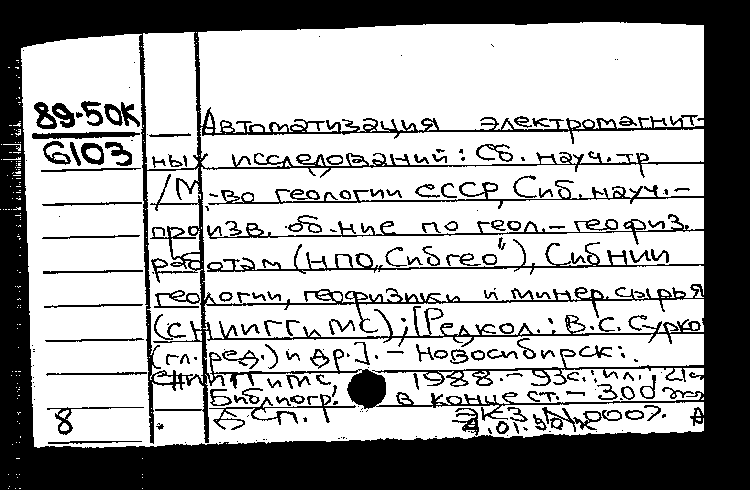 89-50К
6103
Автоматизация электромагнит-
ных исследований: Сб. науч. тр
/М-во геологии СССР, Сиб. науч.-
произв. об-ние по геол.-геофиз.
работам (НПО „Сибгео"), СибНИИ
геологии, геофизики и минер. сырья
(СНИИГГиМС); [Редкол.: В.С. Сурко
(гл. ред.) и др.]. - Новосибирск:
СНИИГГиМС, 1988. - 93с.: ил.; 21с
Библиогр. в конце ст. - 300 эк
8 ДСП. Экз. N 0007.